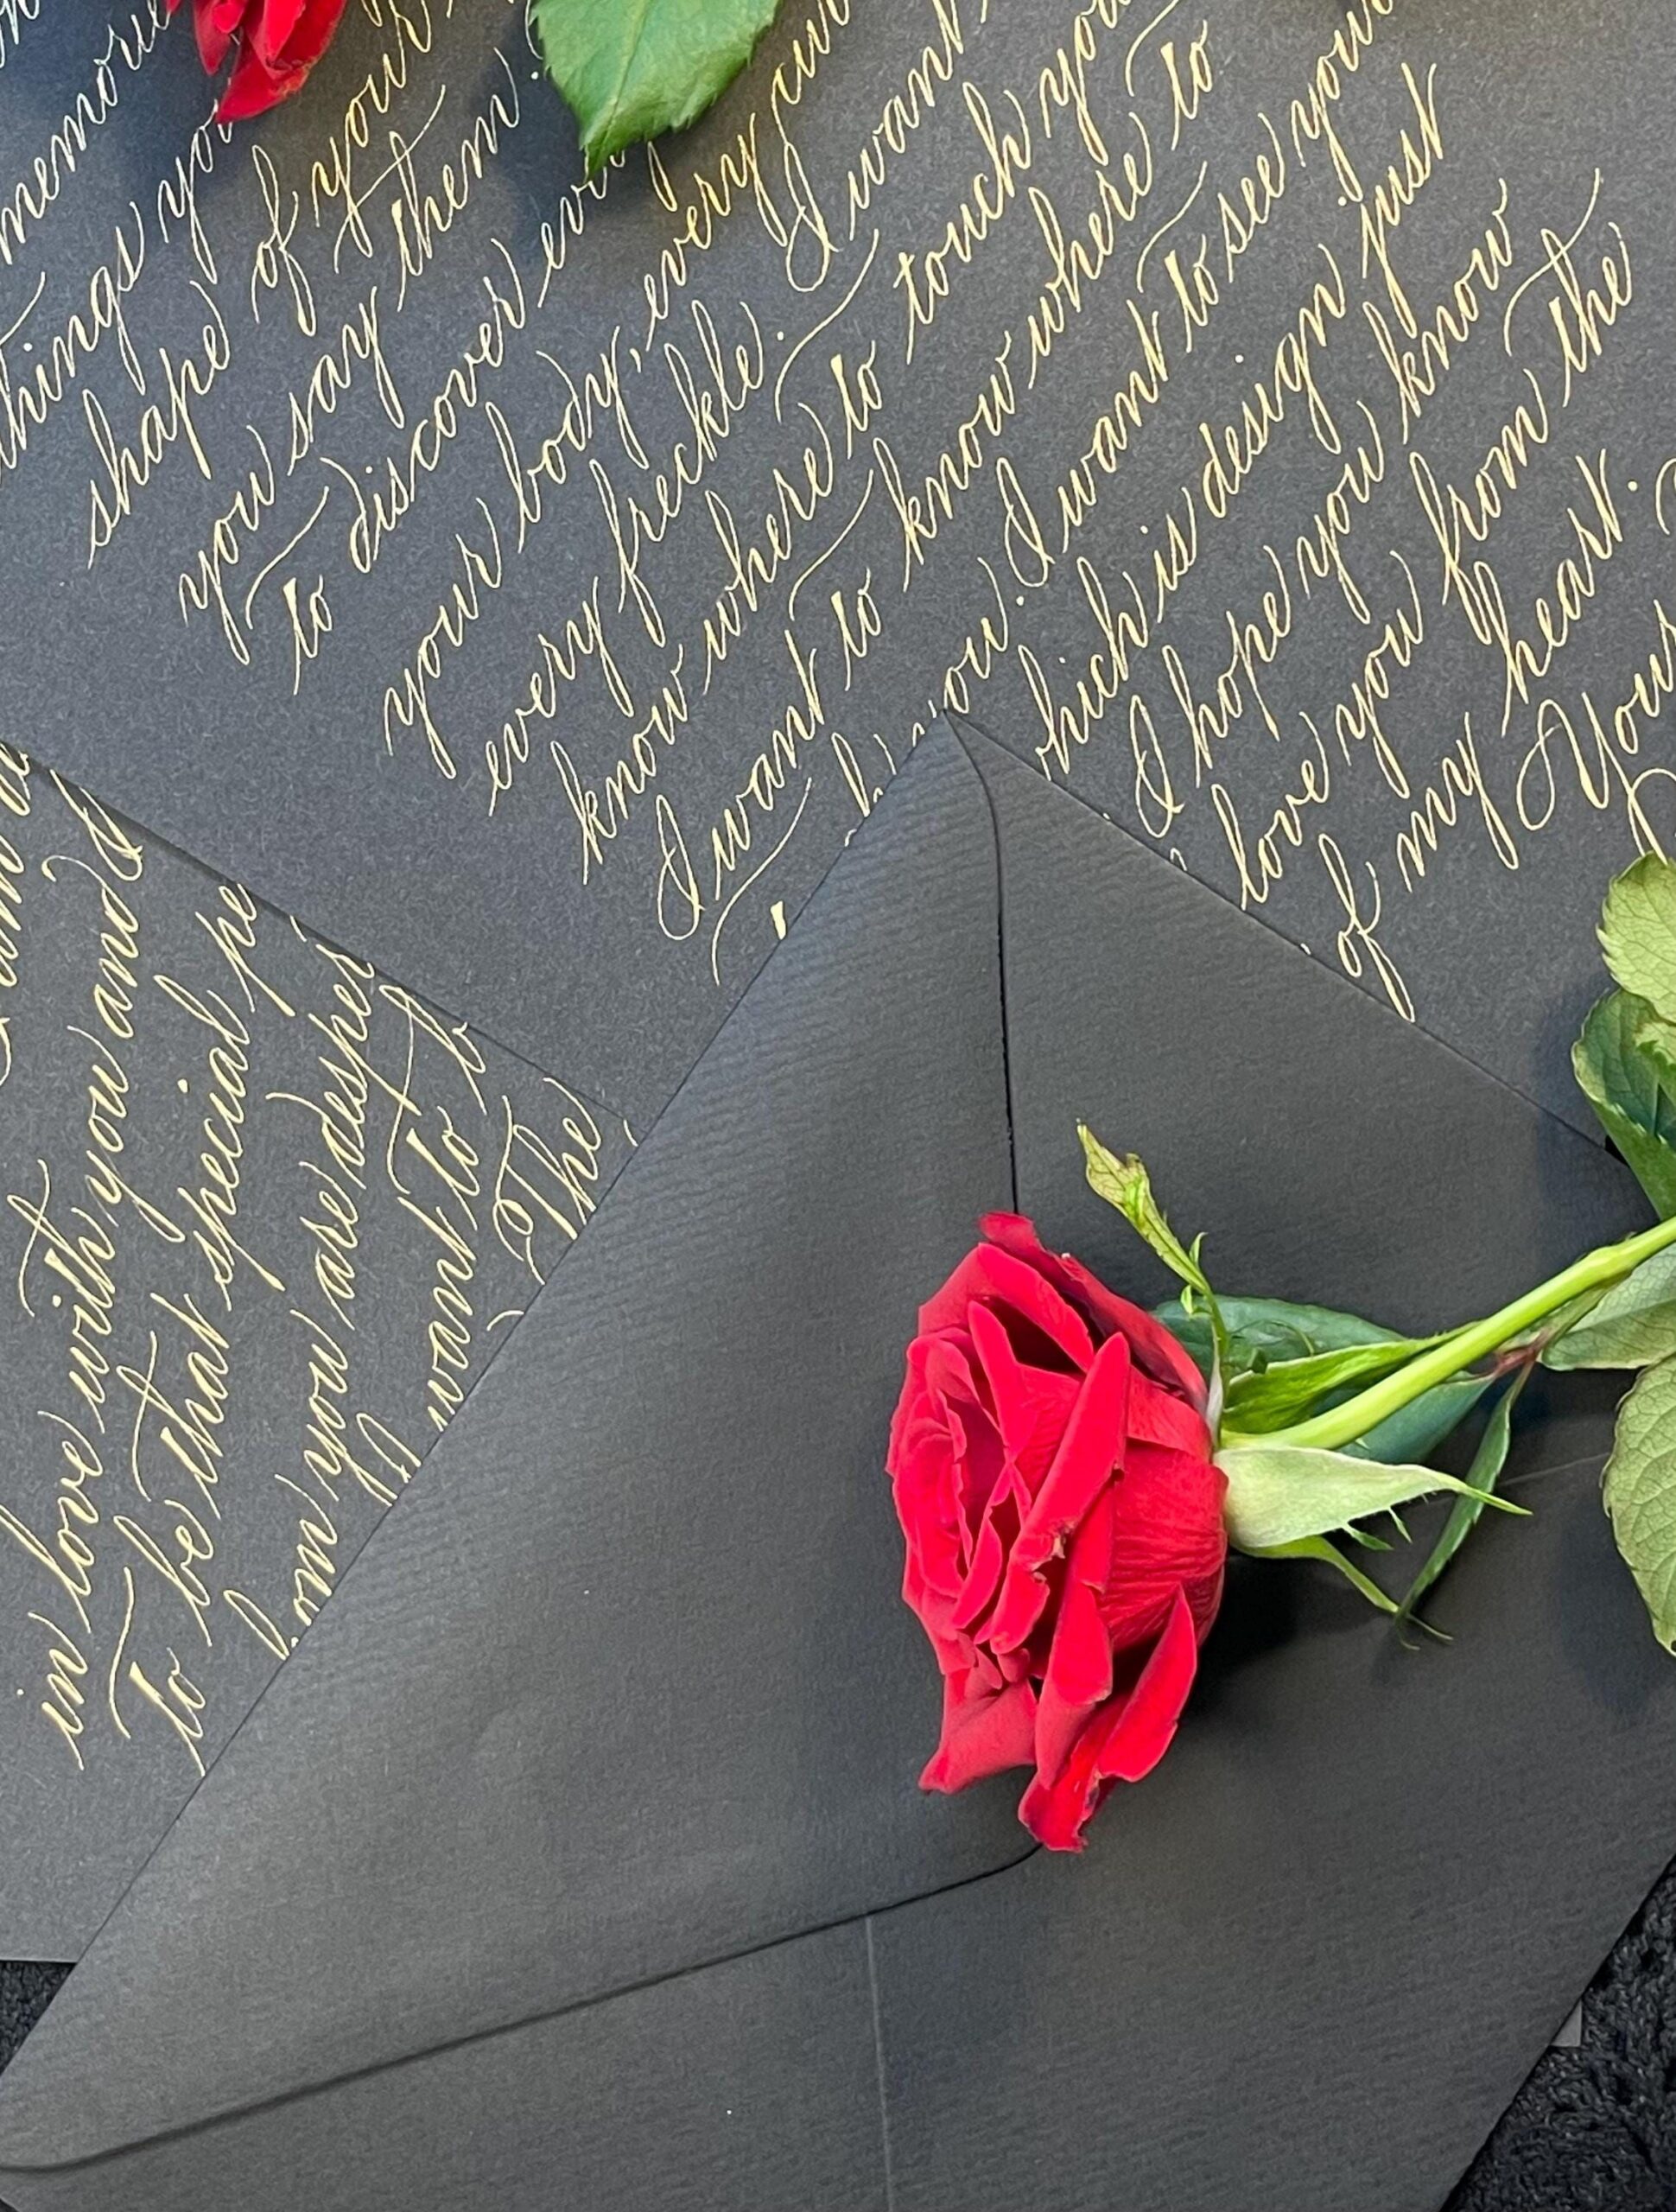 memorie
things yo
shape of your
you say them.
to discover eve
your body, every cur
every freckle. I want
know where to touch you
I want to know where to
you. I want to see your
hich is design just
I hope you know
love you from the
of my heart.
Your
in love with you and
to be that special pe
hom you are desper
want to b
The